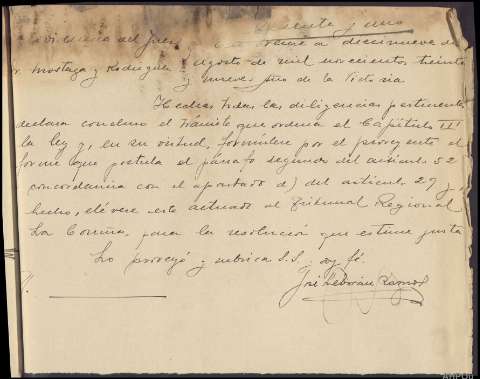 treinta y uno
Providencia del Juez a diecinueve de
Sr. Mostaza y Rodríguez agosto de mil novecientos treinta
y nueve, Año de la Victoria
Hechas todas las diligencias pertinentes
declara concluso el trámite que ordena el Capítulo III
la ley y, en su virtud, formúlese por el proveyente el
forme que postula el párrafo segundo del artículo 52
concordancia con el apartado d) del artículo 29 y,
hecho, elévese este actuado al Tribunal Regional
La Coruña, para la resolución que estime justa
Lo proveyó y rubrica S.S.; doy fé.
José Ramos